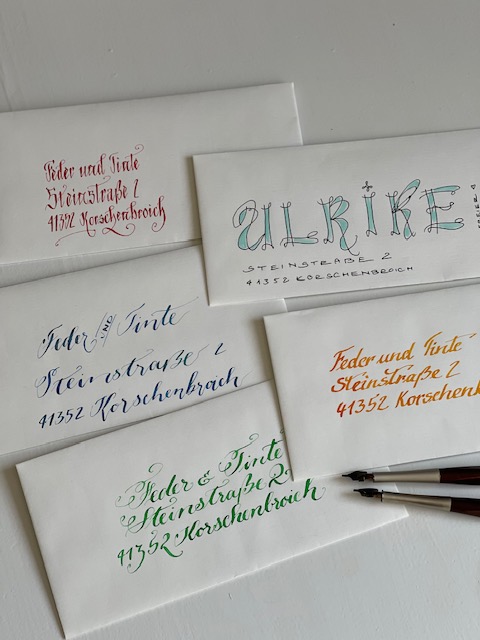 Feder und Tinte
Steinstraße 2
41352 Korschenbroich
ULRIKE
STEINSTRAßE 2
41352 KORSCHENBROICH
Feder UND Tinte
Steinstraße 2
41352 Korschenbroich
Feder und Tinte
Steinstraße 2
41352 Korschenb
Feder & Tinte
Steinstraße 2
41352 Korschenbroich